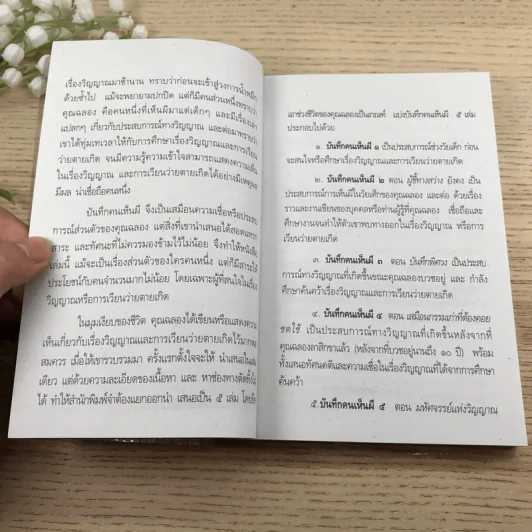 เรื่องวิญญาณมาช้านาน ทราบว่าก่อนจะเข้าสู่วงการน้ำหมึก
ด้วยซ้ำไป แม้จะพยายามปกปิด แต่ก็มีคนส่วนหนึ่งทราบว่า
คุณฉลอง คือคนหนึ่งที่เห็นผีมาแต่เด็กๆ และมีเรื่องเล่า
แปลกๆ เกี่ยวกับประสบการณ์ทางวิญญาณ และต่อมาทราบว่า
เขาได้ทุ่มเทเวลาให้กับการศึกษาเรื่องวิญญาณและการเวียน
ว่ายตายเกิด จนมีความรู้ความเข้าใจสามารถแสดงความเห็น
ในเรื่องวิญญาณและการเวียนว่ายตายเกิดได้อย่างมีเหตุ
มีผล น่าเชื่อถือคนหนึ่ง
บันทึกคนเห็นผี จึงเป็นเสมือนความเชื่อหรือประสบ
การณ์ส่วนตัวของคุณฉลอง แต่สิ่งที่เขานำเสนอได้สอดแทรก
สาระ และทัศนะที่ไม่ควรมองข้ามไว้ไม่น้อย จึงทำให้หนังสือ
เล่มนี้ แม้จะเป็นเรื่องส่วนตัวของใครคนหนึ่ง แต่ก็มีสาระได้
ประโยชน์กับคนจำนวนมากไม่น้อย โดยเฉพาะผู้ที่สนใจในเรื่อง
วิญญาณหรือการเวียนว่ายตายเกิด
ในมุมเงียบของชีวิต คุณฉลองได้เขียนหรือแสดงความ
เห็นเกี่ยวกับเรื่องวิญญาณและการเวียนว่ายตายเกิดไว้มาก
สมควร เมื่อให้เขารวบรวมมา ครั้งแรกตั้งใจจะให้ นำเสนอในเล่ม
เดียว แต่ด้วยความละเอียดของเนื้อหา และ หาช่องทางตัดทิ้งไม่
ได้ ทำให้สำนักพิมพ์จำต้องแยกออกนำ เสนอเป็น ๕ เล่ม โดย
เอาช่วงชีวิตของคุณฉลองเป็นเกณฑ์ แบ่งบันทึกคนเห็นผี ๕ เล่ม
ประกอบไปด้วย
๑. บันทึกคนเห็นผี ๑ เป็นประสบการณ์ช่วงวัยเด็ก ก่อน
จะสนใจหรือศึกษาเรื่องวิญญาณและการเวียนว่ายตายเกิด
๒. บันทึกคนเห็นผี ๒ ตอน ผู้ชี้ทางสว่าง ยังคง เป็น
ประสบการณ์การเห็นผีในวัยเด็กของคุณฉลอง และต่อ ด้วยเรื่อง
ราวและงานเขียนของบุคคลหรือท่านผู้รู้ที่คุณฉลอง เชื่อถือและ
ศึกษางานจนทำให้ตัวเขาพบทางออกในเรื่องวิญญาณ หรือการ
เวียนว่ายตายเกิด
๓. บันทึกคนเห็นผี ๓ ตอน บันทึกพิศวง เป็นประสบ
การณ์ทางวิญญาณที่เกิดขึ้นขณะคุณฉลองบวชอยู่ และ กำลัง
ศึกษาค้นคว้าเรื่องวิญญาณและการเวียนว่ายตายเกิด
๔. บันทึกคนเห็นผี ๔ ตอน เสมือนกรรมเก่าที่ต้องคอย
ชดใช้ เป็นประสบการณ์ทางวิญญาณที่เกิดขึ้นหลังจากที่
คุณฉลองลาสิกขาแล้ว (หลังจากที่บวชอยู่นานถึง ๑๐ ปี) พร้อม
ทั้งเสนอทัศนคติและความเชื่อในเรื่องวิญญาณที่ได้จากการศึกษา
ค้นคว้า
๕. บันทึกคนเห็นผี ๕ ตอน มหัศจรรย์แห่งวิญญาณ